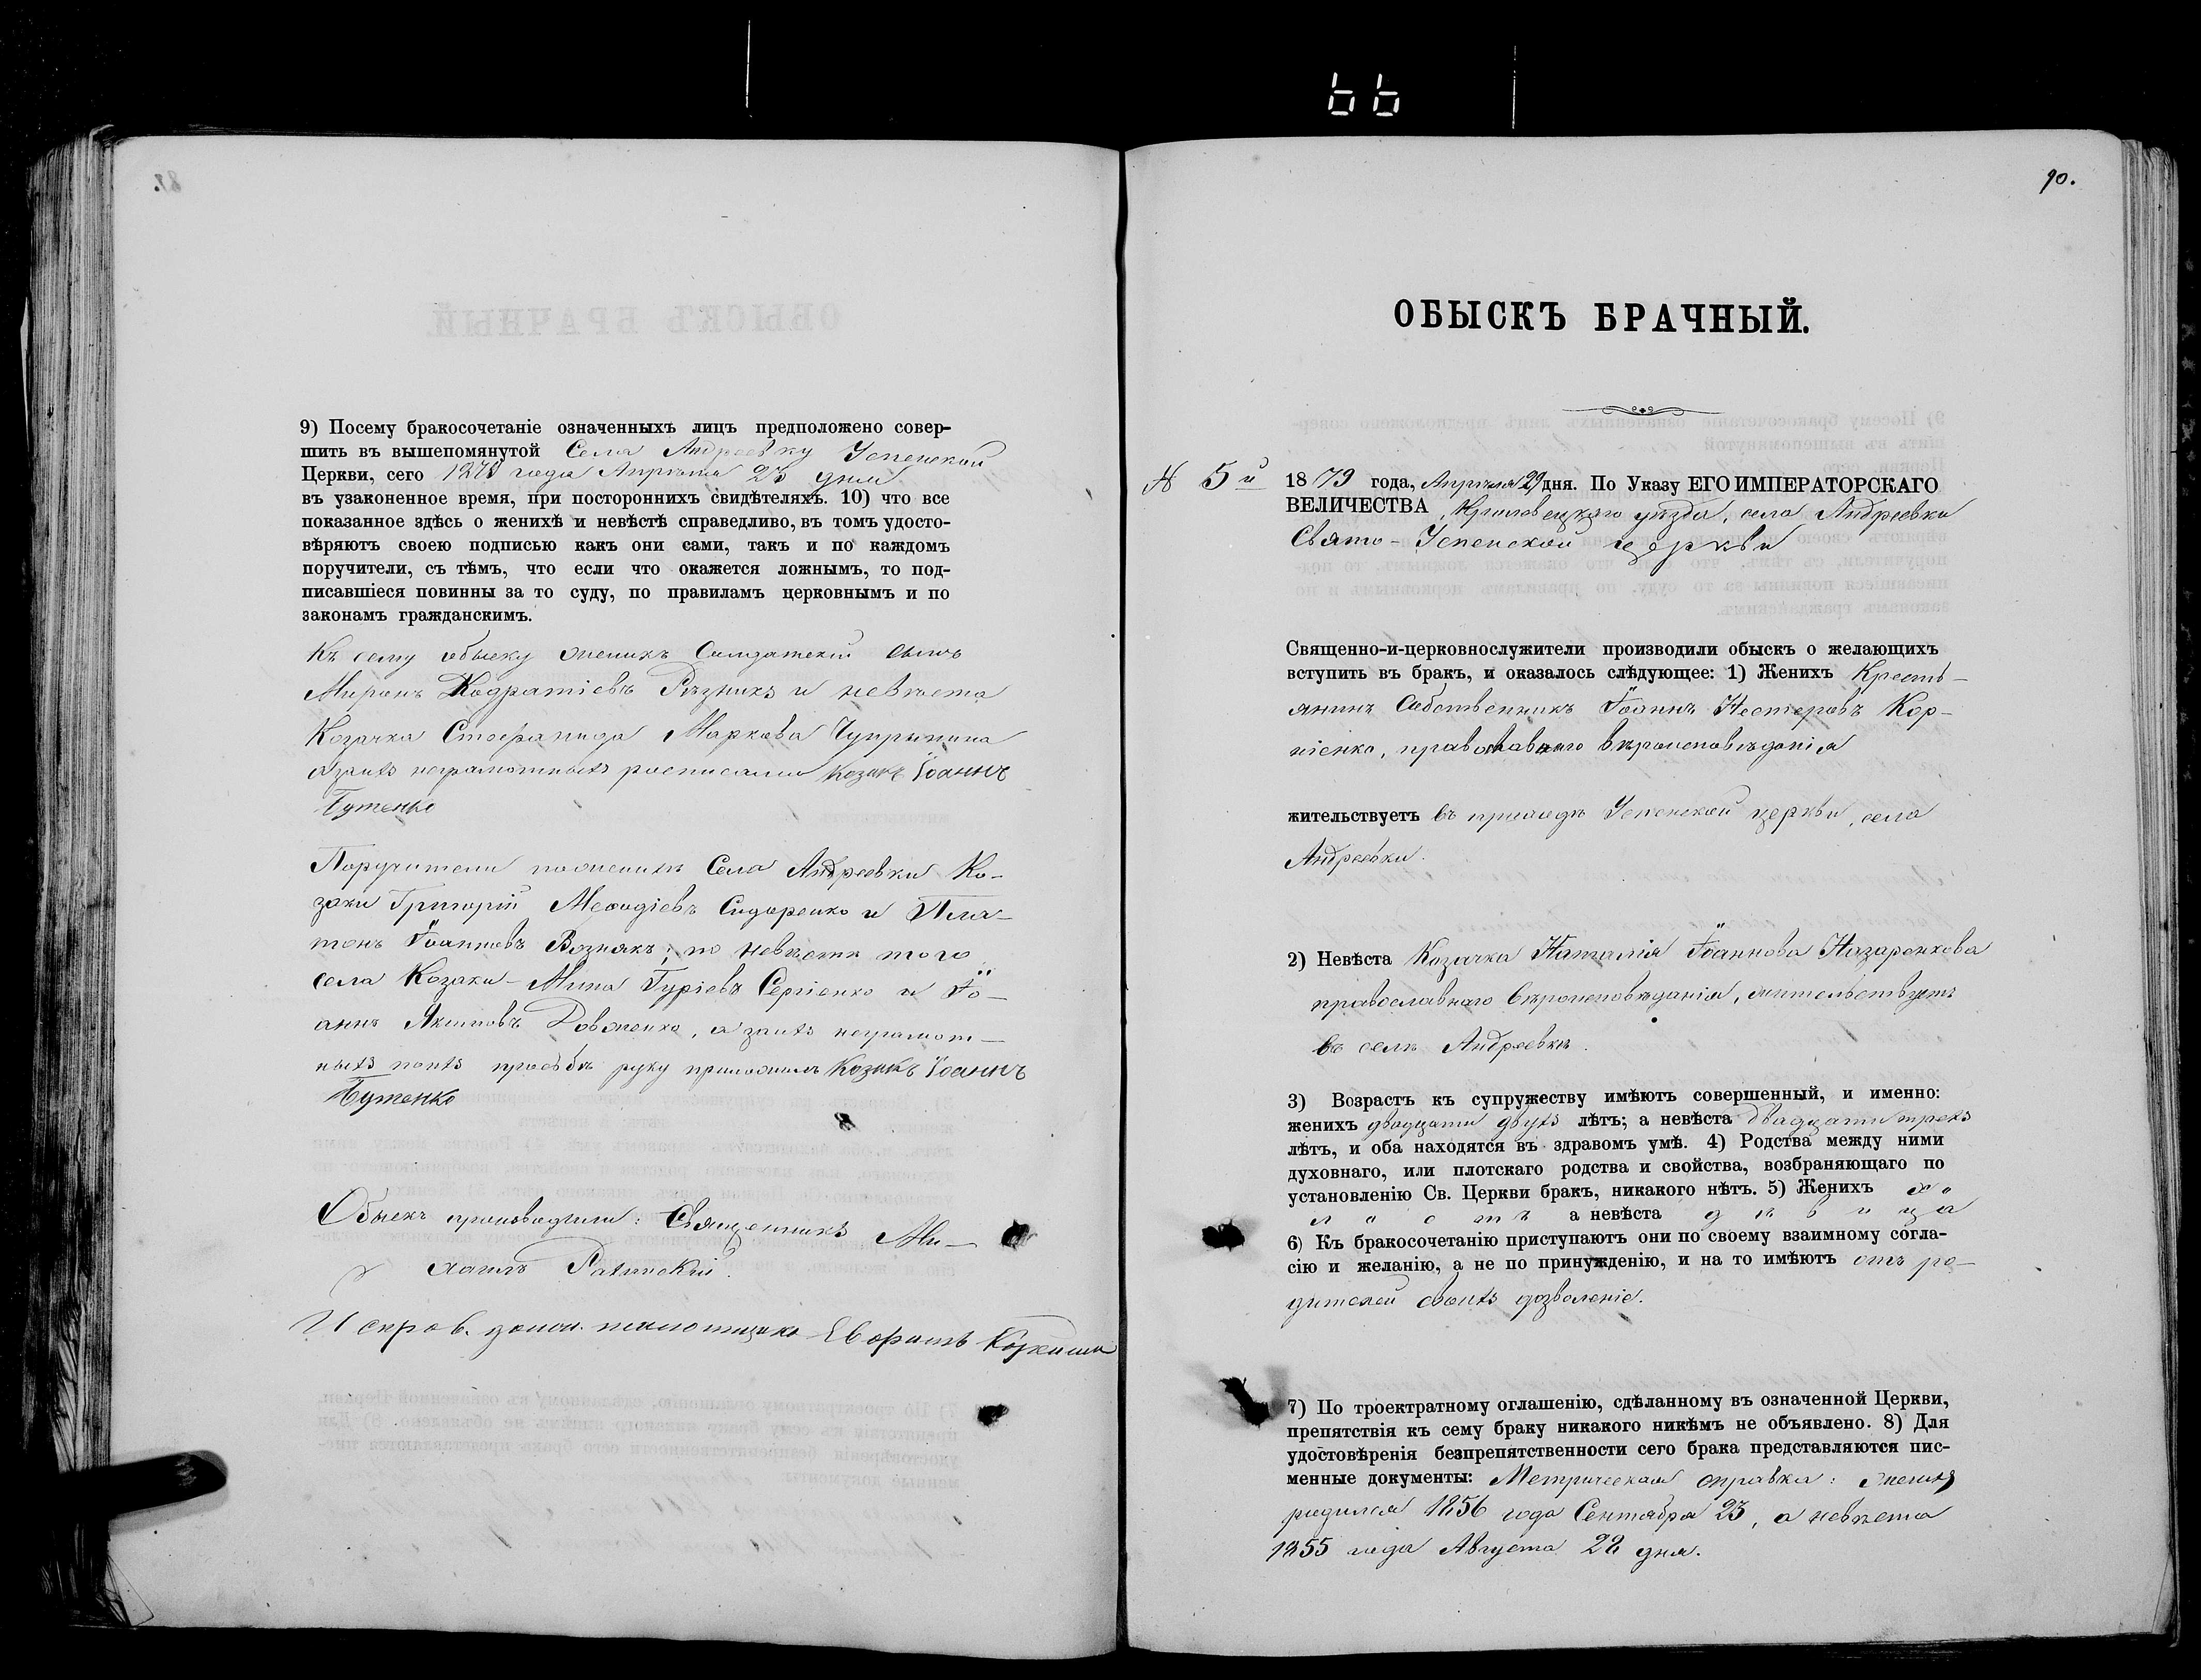 9) Посему бракосочетаніе означенныхъ лицъ предположено совер-
шить въ вышепомянутой Села Андреевку Успенской
Церкви, сего года Апрѣля дня
въ узаконенное время, при постороннихъ свидѣтеляхъ. 10) что все
показанное здѣсь о женихѣ и невѣстѣ справедливо, въ томъ удосто-
вѣряютъ своею подписью какъ они сами, такъ и по каждомъ
поручители, съ тѣмъ, что если что окажется ложнымъ, то под-
писавшіеся повинны за то суду, по правиламъ церковнымъ и по
законамъ гражданскимъ.
Къ сему обыску женихъ Солдатскій сынъ
Миронъ Кодратіевъ Рѣзникъ и невѣста
Козачка Стефанида Маркова Чуприпина
а заихъ неграмотныхъ росписался Козакъ Іоаннъ
Бутенко
Поручители по женихѣ Села Андреевки Ко-
заки Григорій Меѳодіевъ Сидоренко и Пла-
тонъ Іоанновъ Вознякъ; по невѣстѣ того
села Козаки - Мина Гуріевъ Сергіенко и Іо-
аннъ Якимовъ Довженко, а заихъ неграмот-
ныхъ поихъ прозьбѣ руку приложилъ Козакъ Іоаннъ
Бутенко
Обыскъ производили: Священникъ Ми-
хаилъ Ратинскій.
Исправ. должн. псаломщика
90.
ОБЫСКЪ БРАЧНЫЙ.
№ 5й 1879 года, Апрѣля 29 дня. По Указу ЕГО ИМПЕРАТОРСКАГО
ВЕЛИЧЕСТВА, уѣзда, села Андреевки
Свято-Успенской церкви
Священно-и-церковнослужители производили обыскъ о желающихъ
вступить въ бракъ, и оказалось слѣдующее: 1) Женихъ Кресть-
янинъ Собственникъ Іоаннъ Нестеровъ Кор-
ніенко, православнаго вѣроисповѣданія
жительствуетъ въ приходѣ Успенской церкви, села
Андреевки.
2) Невѣста Козачка Наталія Іоаннова Назаренкова
православнаго вѣроисповѣданія, жительствуетъ
въ селѣ Андреевкѣ.
3) Возрастъ къ супружеству имѣютъ совершенный, и именно:
женихъ двадцати двухъ лѣтъ; а невѣста двадцати трехъ
лѣтъ, и оба находятся въ здравомъ умѣ. 4) Родства между ними
духовнаго, или плотскаго родства и свойства, возбраняющаго по
установленію Св. Церкви бракъ, никакого нѣтъ. 5) Женихъ хо
лостъ а невѣста дѣвица
6) Къ бракосочетанію приступаютъ они по своему взаимному согла-
сію и желанію, а не по принужденію, и на то имѣютъ отъ ро-
дителей своихъ дозволеніе.
7) По троекратному оглашенію, сдѣланному въ означенной Церкви,
препятствія къ сему браку никакого никѣмъ не объявлено. 8) Для
удостовѣренія безпрепятственности сего брака представляются пис-
менные документы: Метрическая справка: женихъ
родился 1856 года Сентября 23, а невѣста
1855 года Августа 22 дня.